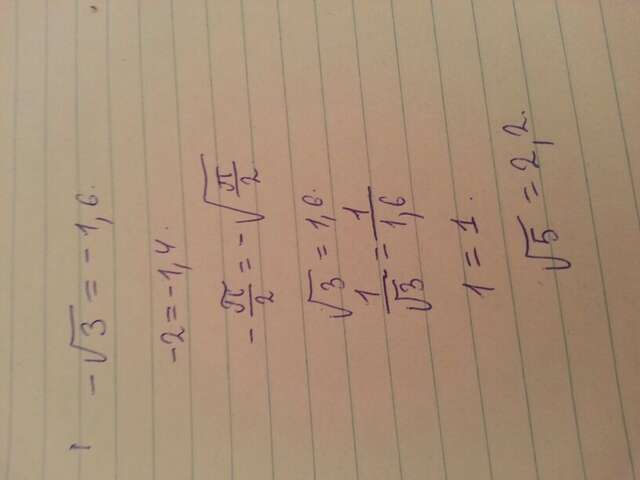 -√3 = -1,6.
-2 = -1,4.
-π/2 = -√(π/2)
√3 = 1,6.
1/√3 = 1/1,6
1 = 1.
√5 = 2,2.